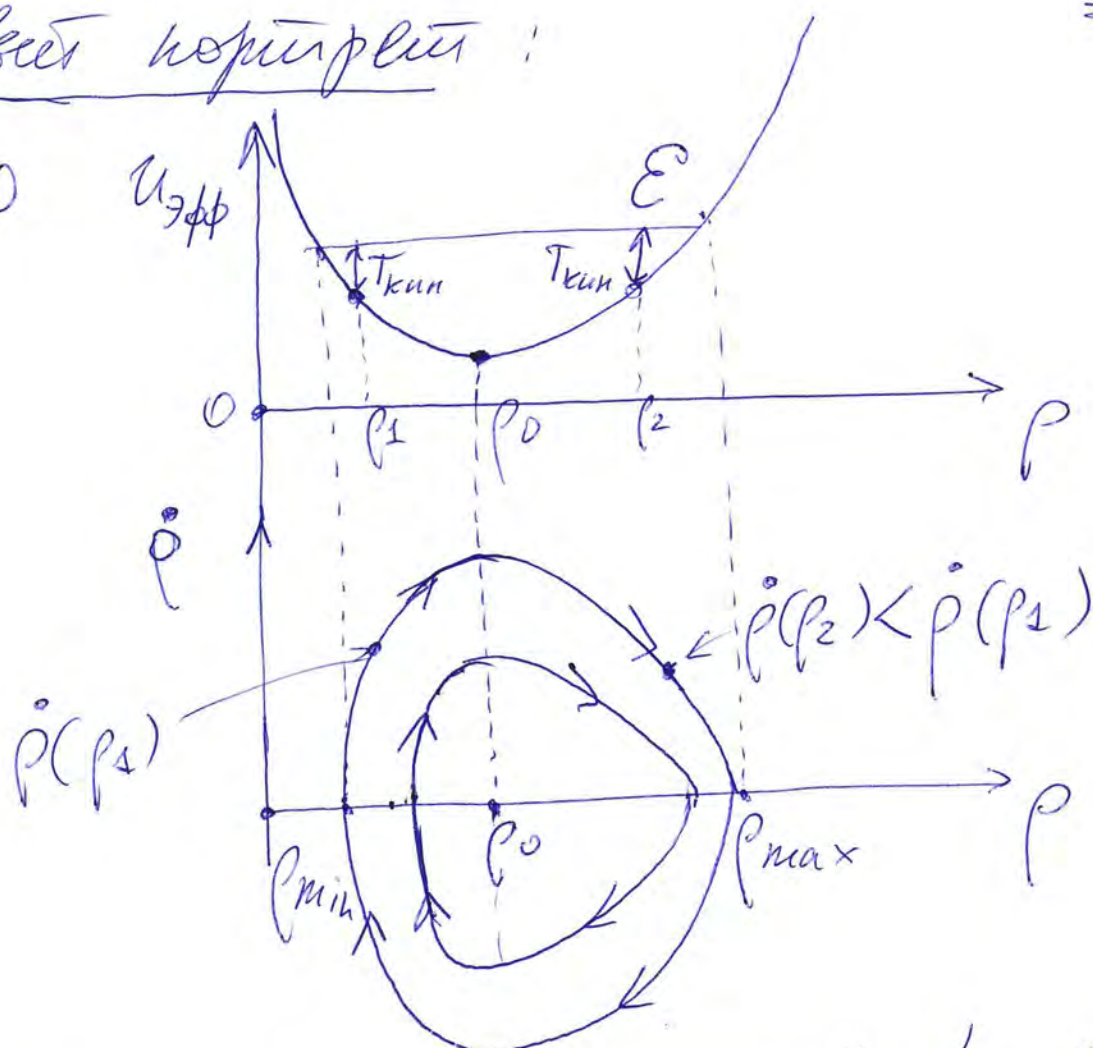 портрет :
U_эфф
ε
T_кин T_кин
0 ρ1 ρ0 ρ2 ρ
ρ̇
ρ̇(ρ2) < ρ̇(ρ1)
ρ̇(ρ1)
ρ_min ρ0 ρ_max ρ